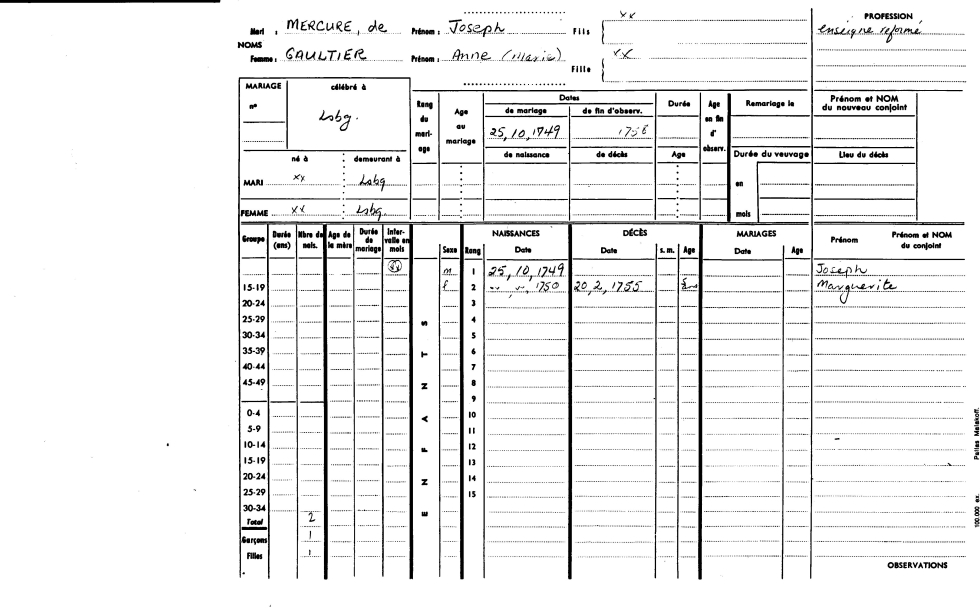 Mari : MERCURE, de Prénom : Joseph Fils xx PROFESSION
enseigne reformé
NOMS
Femme : GAULTIER Prénom : Anne (Marie) Fille xx
MARIAGE célébré à
nº Lsbg.
Rang du mari-age Age au mariage Dates Durée Age en fin d' observ. Remariage le Prénom et NOM du nouveau conjoint
de mariage de fin d'observ.
25,10,1749 1758
né à demeurant à
de naissance de décès Age Durée du veuvage Lieu du décès
MARI xx Lsbg en
FEMME xx Lsbg mois
Groupe Durée (ans) Nbre de nais. Age de la mère Durée de mariage Inter-valle en mois NAISSANCES DÉCÈS MARIAGES Prénom Prénom et NOM du conjoint
Sexe Rang Date Date s. m. Age Date Age
m 1 25,10,1749 Joseph
15-19 f 2 1750 20,2,1755 Marguerite
20-24 3
25-29 4
30-34 5
35-39 6
40-44 7
45-49 8
9
0-4 10
5-9 11
10-14 12
15-19 13
20-24 14
25-29 15
30-34
Total 2
Garçons 1
Filles 1
ENFANTS
OBSERVATIONS
100.000 ex. Paltas Malakoff.